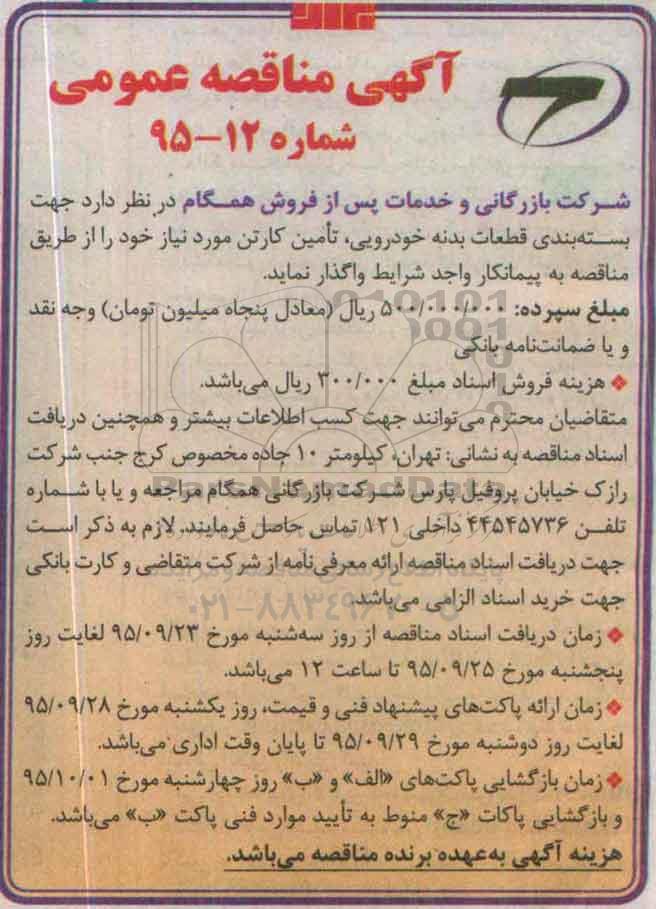 آگهی مناقصه عمومی
شماره ۱۲-۹۵
شرکت بازرگانی و خدمات پس از فروش همگام در نظر دارد جهت
بسته‌بندی قطعات بدنه خودرویی، تأمین کارتن مورد نیاز خود را از طریق
مناقصه به پیمانکار واجد شرایط واگذار نماید.
مبلغ سپرده: ۵۰۰/۰۰۰/۰۰۰ ریال (معادل پنجاه میلیون تومان) وجه نقد
و یا ضمانت‌نامه بانکی
❖ هزینه فروش اسناد مبلغ ۳۰۰/۰۰۰ ریال می‌باشد.
متقاضیان محترم می‌توانند جهت کسب اطلاعات بیشتر و همچنین دریافت
اسناد مناقصه به نشانی: تهران، کیلومتر ۱۰ جاده مخصوص کرج جنب شرکت
رازک خیابان پروفیل پارس شرکت بازرگانی همگام مراجعه و یا با شماره
تلفن ۴۴۵۴۵۷۳۶ داخلی ۱۲۱ تماس حاصل فرمایند. لازم به ذکر است
جهت دریافت اسناد مناقصه ارائه معرفی‌نامه از شرکت متقاضی و کارت بانکی
جهت خرید اسناد الزامی می‌باشد.
❖ زمان دریافت اسناد مناقصه از روز سه‌شنبه مورخ ۹۵/۰۹/۲۳ لغایت روز
پنجشنبه مورخ ۹۵/۰۹/۲۵ تا ساعت ۱۲ می‌باشد.
❖ زمان ارائه پاکت‌های پیشنهاد فنی و قیمت، روز یکشنبه مورخ ۹۵/۰۹/۲۸
لغایت روز دوشنبه مورخ ۹۵/۰۹/۲۹ تا پایان وقت اداری می‌باشد.
❖ زمان بازگشایی پاکت‌های «الف» و «ب» روز چهارشنبه مورخ ۹۵/۱۰/۰۱
و بازگشایی پاکات «ج» منوط به تأیید موارد فنی پاکت «ب» می‌باشد.
هزینه آگهی به‌عهده برنده مناقصه می‌باشد.
ParsNamadData